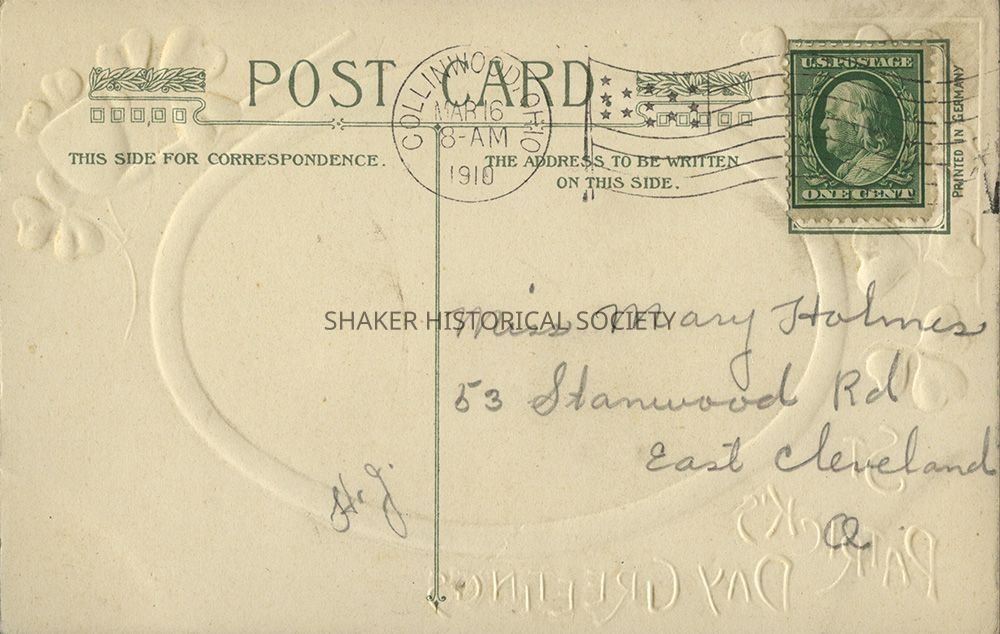 POST CARD
COLLINWOOD, OHIO
MAR 16
8-AM
1910
U.S. POSTAGE
ONE CENT
PRINTED IN GERMANY
THIS SIDE FOR CORRESPONDENCE.
THE ADDRESS TO BE WRITTEN
ON THIS SIDE.
SHAKER HISTORICAL SOCIETY
Miss Mary Holmes
53 Stanwood Rd
East Cleveland
O.
H.J.
ST.
PATRICK'S
DAY GREETINGS